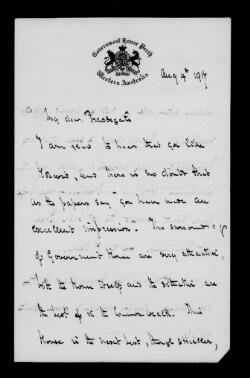 Government House Perth
Western Australia
Aug 4th 1917
My dear
I am glad to hear that you like
, and there is no doubt that
as the papers say you have made an
excellent "impression". The surroundings
of Government House are very attractive,
both the House itself and the situation are
the best of in the Commonwealth. This
House is the next best, though smaller,